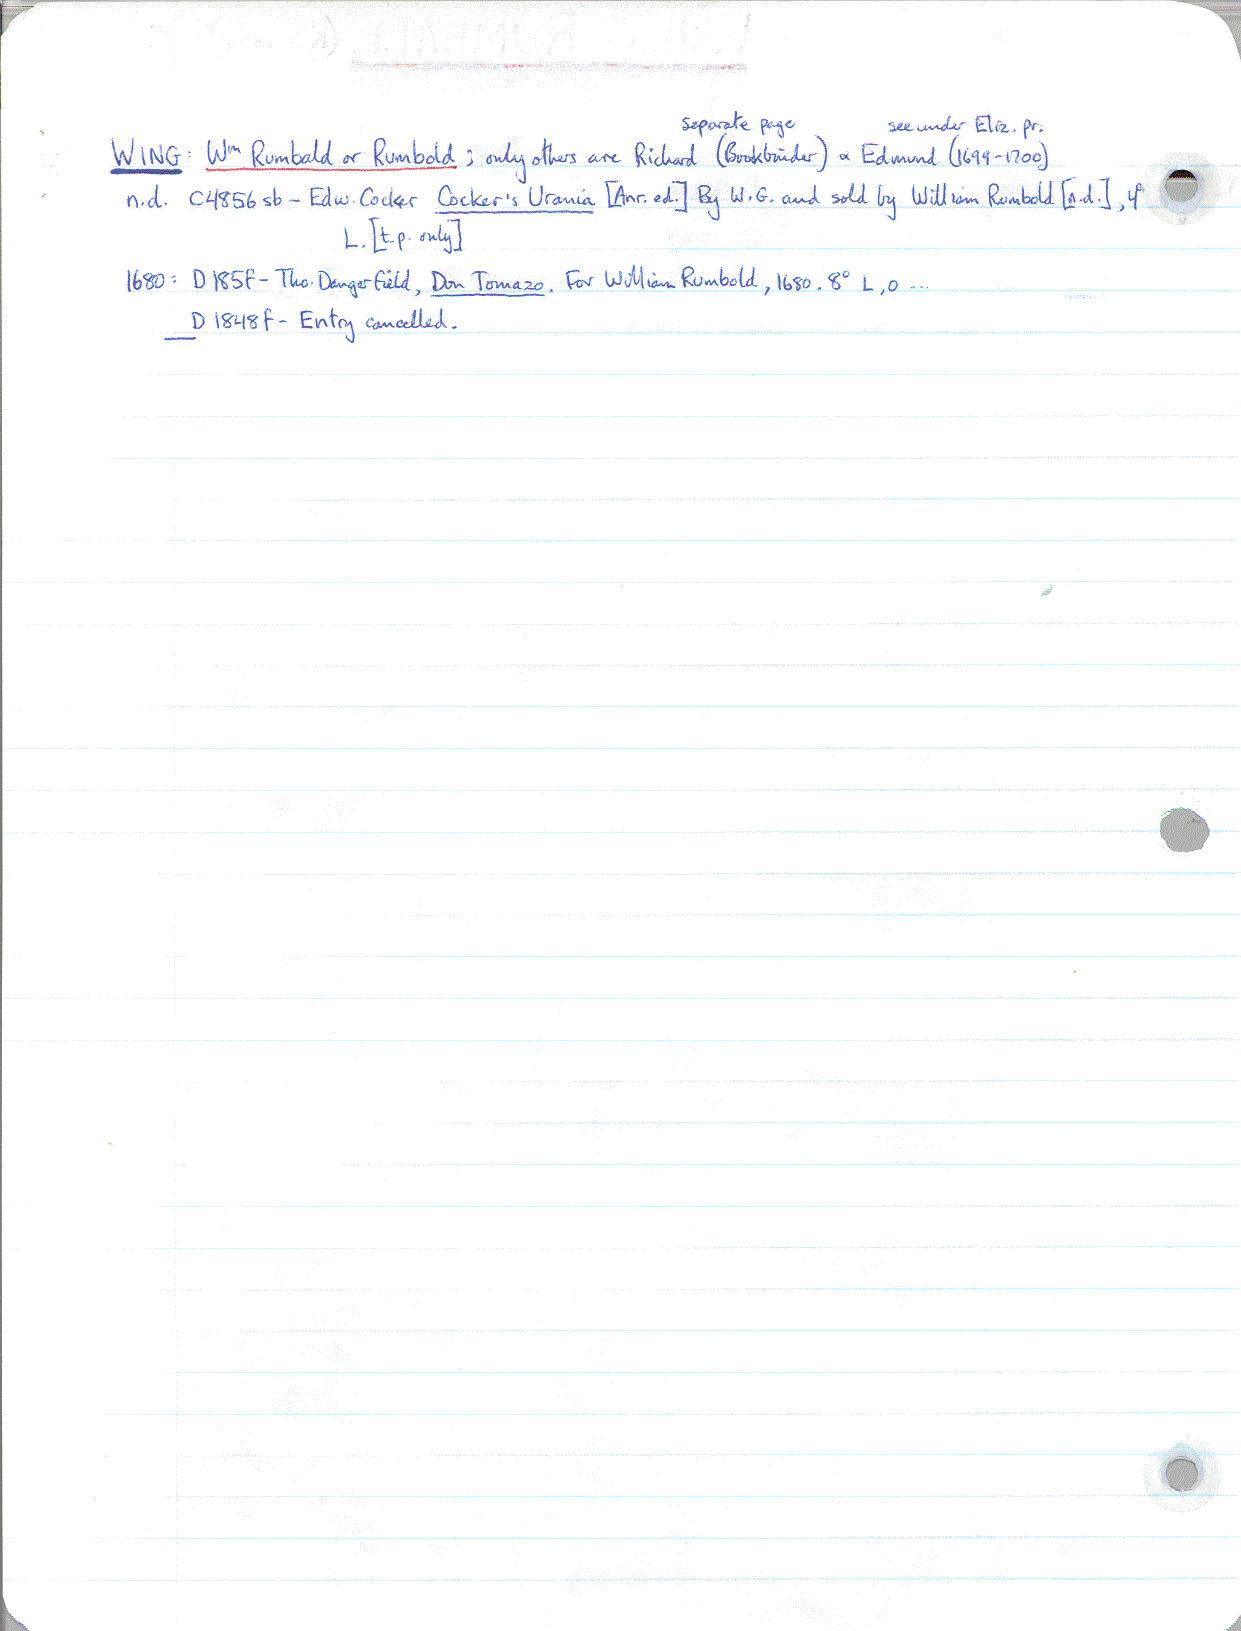 separate page see under Eliz. pr.
WING: Wm Rumbald or Rumbold; only others are Richard (Bookbinder) & Edmund (1699-1700)
n.d. C4856sb - Edw. Cocker Cocker's Urania [Anr. ed.] By W.G. and sold by William Rumbold [n.d.], 4°
L. [t.p. only]
1680: D185F - Tho. Dangerfield, Don Tomazo. For William Rumbold, 1680. 8° L, O ...
D1848F - Entry cancelled.